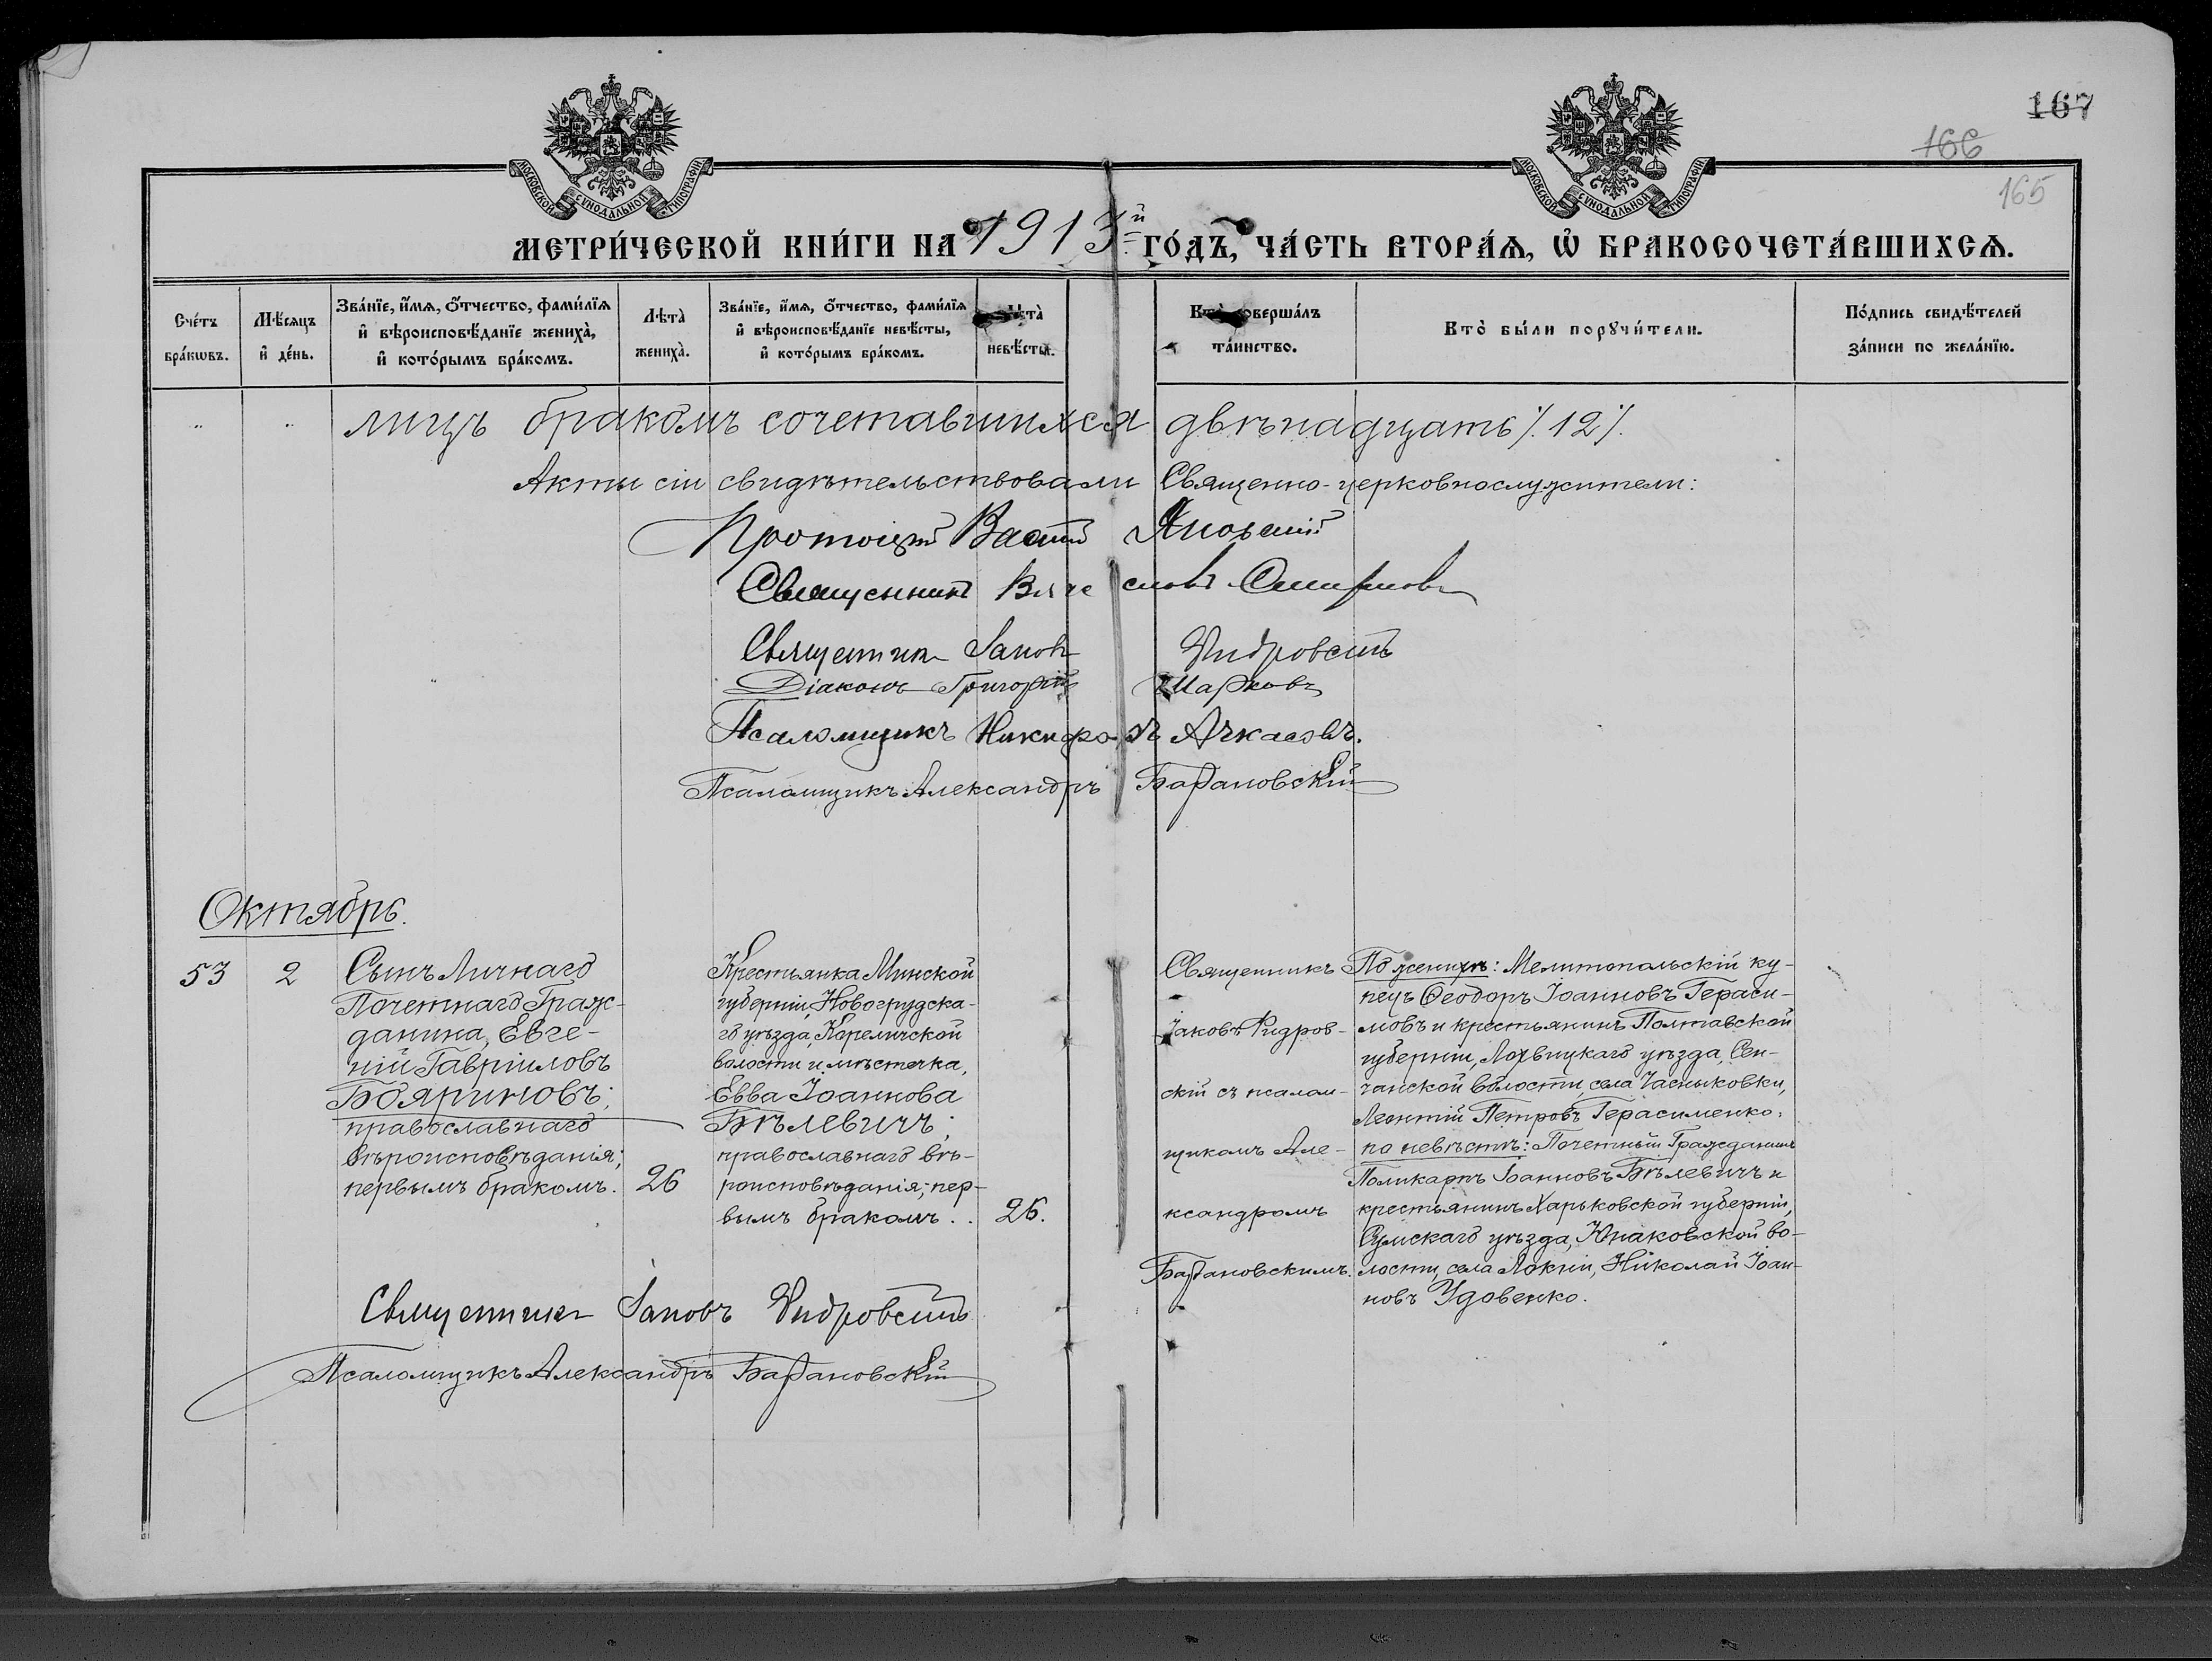 167
166
165
МОСКОВСКОЙ СѴНОДАЛЬНОЙ ТИПОГРАФІИ
МОСКОВСКОЙ СѴНОДАЛЬНОЙ ТИПОГРАФІИ
МЕТРИ́ЧЕСКОЙ КНИ́ГИ НА 1913й ГО́ДЪ, ЧА́СТЬ ВТОРА́Ѧ, Ѽ БРАКОСОЧЕТА́ВШИХСѦ.
Сче́тъ бра́кѡвъ.
Мѣ́сѧцъ и҆ де́нь.
Зва́нїе, и҆́мѧ, ѻ҆́тчество, фами́лїѧ и҆ вѣроисповѣ́данїе жениха̀, и҆ кото́рымъ бра́комъ.
Лѣта̀ жениха̀.
Зва́нїе, и҆́мѧ, ѻ҆́тчество, фами́лїѧ и҆ вѣроисповѣ́данїе невѣ́сты, и҆ кото́рымъ бра́комъ.
Лѣта̀ невѣ́сты.
Кто̀ соверша́лъ та́инство.
Кто̀ бы́ли порꙋчи́тели.
По́дпись свидѣ́телей за́писи по жела́нїю.
лицъ бракомъ сочетавшихся двѣнадцать /. 12 /.
Акты сіи свидѣтельствовали Священно-церковнослужители:
Протоіерей Василій Яновскій
Священникъ Вячеславъ Смирновъ
Священникъ Іаковъ Ѳидровскій
Діаконъ Григорій Шарковъ
Псаломщикъ Никифоръ Ачкасовъ.
Псаломщикъ Александръ Барановскій
Октябрь.
53
2
Сынъ Личнаго
Почетнаго Граж-
данина, Евге-
ній Гавріиловъ
Бояриновъ;
православнаго
вѣроисповѣданія;
первымъ бракомъ.
26
Крестьянка Минской
губерніи, Новогрудска-
го уѣзда, Кореличской
волости и мѣстечка,
Евва Іоаннова
Бѣлевичъ;
православнаго вѣ-
роисповѣданія; пер-
вымъ бракомъ..
26.
Священникъ
Іаковъ Ѳидров-
скій съ псалом-
щикомъ Але-
ксандромъ
Барановскимъ.
По женихѣ: Мелитопольскій ку-
пецъ Ѳеодоръ Іоанновъ Гераси-
мовъ и крестьянинъ Полтавской
губерніи, Лохвицкаго уѣзда, Сен-
чанской волости, села Часныковки,
Леонтій Петровъ Герасименко;
по невѣстѣ: Почетный Гражданинъ
Поликарпъ Іоанновъ Бѣлевичъ и
крестьянинъ Харьковской губерніи,
Сумскаго уѣзда, Юнаковской во-
лости, села Локни, Николай Іоан-
новъ Удовенко.
Священникъ Іаковъ Ѳидровскій
Псаломщикъ Александръ Барановскій